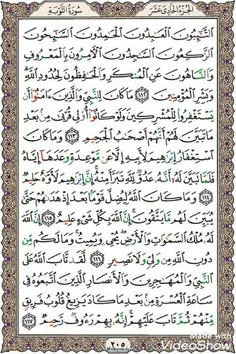 الجزء الحادي عشر
سورة التوبة
التَّٰئِبُونَ الْعَٰبِدُونَ الْحَٰمِدُونَ السَّٰئِحُونَ
الرَّٰكِعُونَ السَّٰجِدُونَ الْآمِرُونَ بِالْمَعْرُوفِ
وَالنَّاهُونَ عَنِ الْمُنكَرِ وَالْحَٰفِظُونَ لِحُدُودِ اللَّهِ
وَبَشِّرِ الْمُؤْمِنِينَ ١١٢ مَا كَانَ لِلنَّبِيِّ وَالَّذِينَ ءَامَنُوٓا أَن
يَسْتَغْفِرُوا لِلْمُشْرِكِينَ وَلَوْ كَانُوٓا أُو۟لِي قُرْبَىٰ مِنۢ بَعْدِ
مَا تَبَيَّنَ لَهُمْ أَنَّهُمْ أَصْحَٰبُ الْجَحِيمِ ١١٣ وَمَا كَانَ
اسْتِغْفَارُ إِبْرَٰهِيمَ لِأَبِيهِ إِلَّا عَن مَّوْعِدَةٍ وَعَدَهَآ إِيَّاهُ
فَلَمَّا تَبَيَّنَ لَهُۥٓ أَنَّهُۥ عَدُوٌّ لِّلَّهِ تَبَرَّأَ مِنْهُ إِنَّ إِبْرَٰهِيمَ لَأَوَّٰهٌ حَلِيمٌ
١١٤ وَمَا كَانَ اللَّهُ لِيُضِلَّ قَوْمًۢا بَعْدَ إِذْ هَدَىٰهُمْ حَتَّىٰ
يُبَيِّنَ لَهُم مَّا يَتَّقُونَ إِنَّ اللَّهَ بِكُلِّ شَيْءٍ عَلِيمٌ ١١٥ إِنَّ اللَّهَ
لَهُۥ مُلْكُ السَّمَٰوَٰتِ وَالْأَرْضِ يُحْيِۦ وَيُمِيتُ وَمَا لَكُم مِّن
دُونِ اللَّهِ مِن وَلِيٍّ وَلَا نَصِيرٍ ١١٦ لَّقَد تَّابَ اللَّهُ عَلَى
النَّبِيِّ وَالْمُهَٰجِرِينَ وَالْأَنصَارِ الَّذِينَ اتَّبَعُوهُ فِي
سَاعَةِ الْعُسْرَةِ مِنۢ بَعْدِ مَا كَادَ يَزِيغُ قُلُوبُ فَرِيقٍ
مِّنْهُمْ ثُمَّ تَابَ عَلَيْهِمْ إِنَّهُۥ بِهِمْ رَءُوفٌ رَّحِيمٌ ١١٧
٢٠٥
Made with
VideoShow